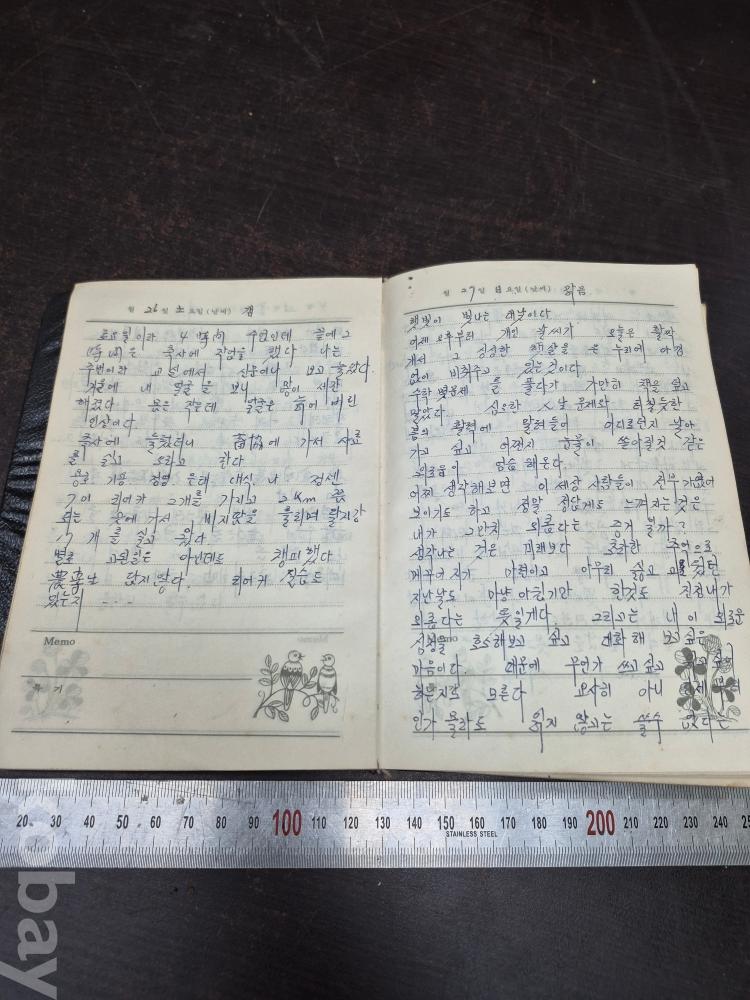 월 26 일 土 요일(날씨) 갬
토요일이라 4 時間 수업인데 끝에 2
은 축사에 작업을 했다 나는
주번이라 교실에서 신문이나 보고 놀았다.
거울에 내 얼굴을 보니 많이
해졌다 몸은 작는데 얼굴은 늙어 버린
인상이다.
축사에 들렀더니 畜協에 가서 사료
를 싣고 오라고 한다
나 점센
가 리어카 2개를 가지고 2Km 쯤
되는 곳에 가서 비지땀을 흘리며
7 개를 싣고 왔다
별로 고된일은 아닌데도 챙피했다
답지 않다. 리어카 실습도
있는지 ...
Memo
특 기
월 27 일 日 요일(날씨) 맑음
햇빛이 빛나는 대낮이다
어제 오후부터 개인 날씨가 오늘은 활짝
개서 그 싱싱한 햇살을 온 누리에 아낌
없이 비춰주고 있는 것이다.
수학 몇문제를 풀다가 가만히 책을 덮고
말았다. 심오한 人生 문제와
봄의 활력에 어디로던지 날아
가고 싶고 어쩐지 눈물이 쏟아질것 같은
외로움이 엄습 해온다.
어찌 생각해보면 이 세상 사람들이 전부 가엾어
보이기도 하고 정말 정답게도 느껴지는것은
내가 그만치 외롭다는 증거 일까?
생각나는 것은 미래보다 추억으로
메꾸어지기 마련이고 아무리 싫고
지난날도 마냥 아쉽기만 한것도 진정 내가
외롭다는 뜻일게다. 그리고는 내 이 외로운
심정을 호소해보고 싶고 대화해 보고싶은
마음이다. 때문에 무언가 쓰고싶고
하는지도 모른다
인가 몰라도 읽지 않고는 쓸수 없다는
20 30 40 50 60 70 80 90 100 110 120 130 140 150 160 170 180 190 200 210 220 230 240
STAINLESS STEEL
cobay